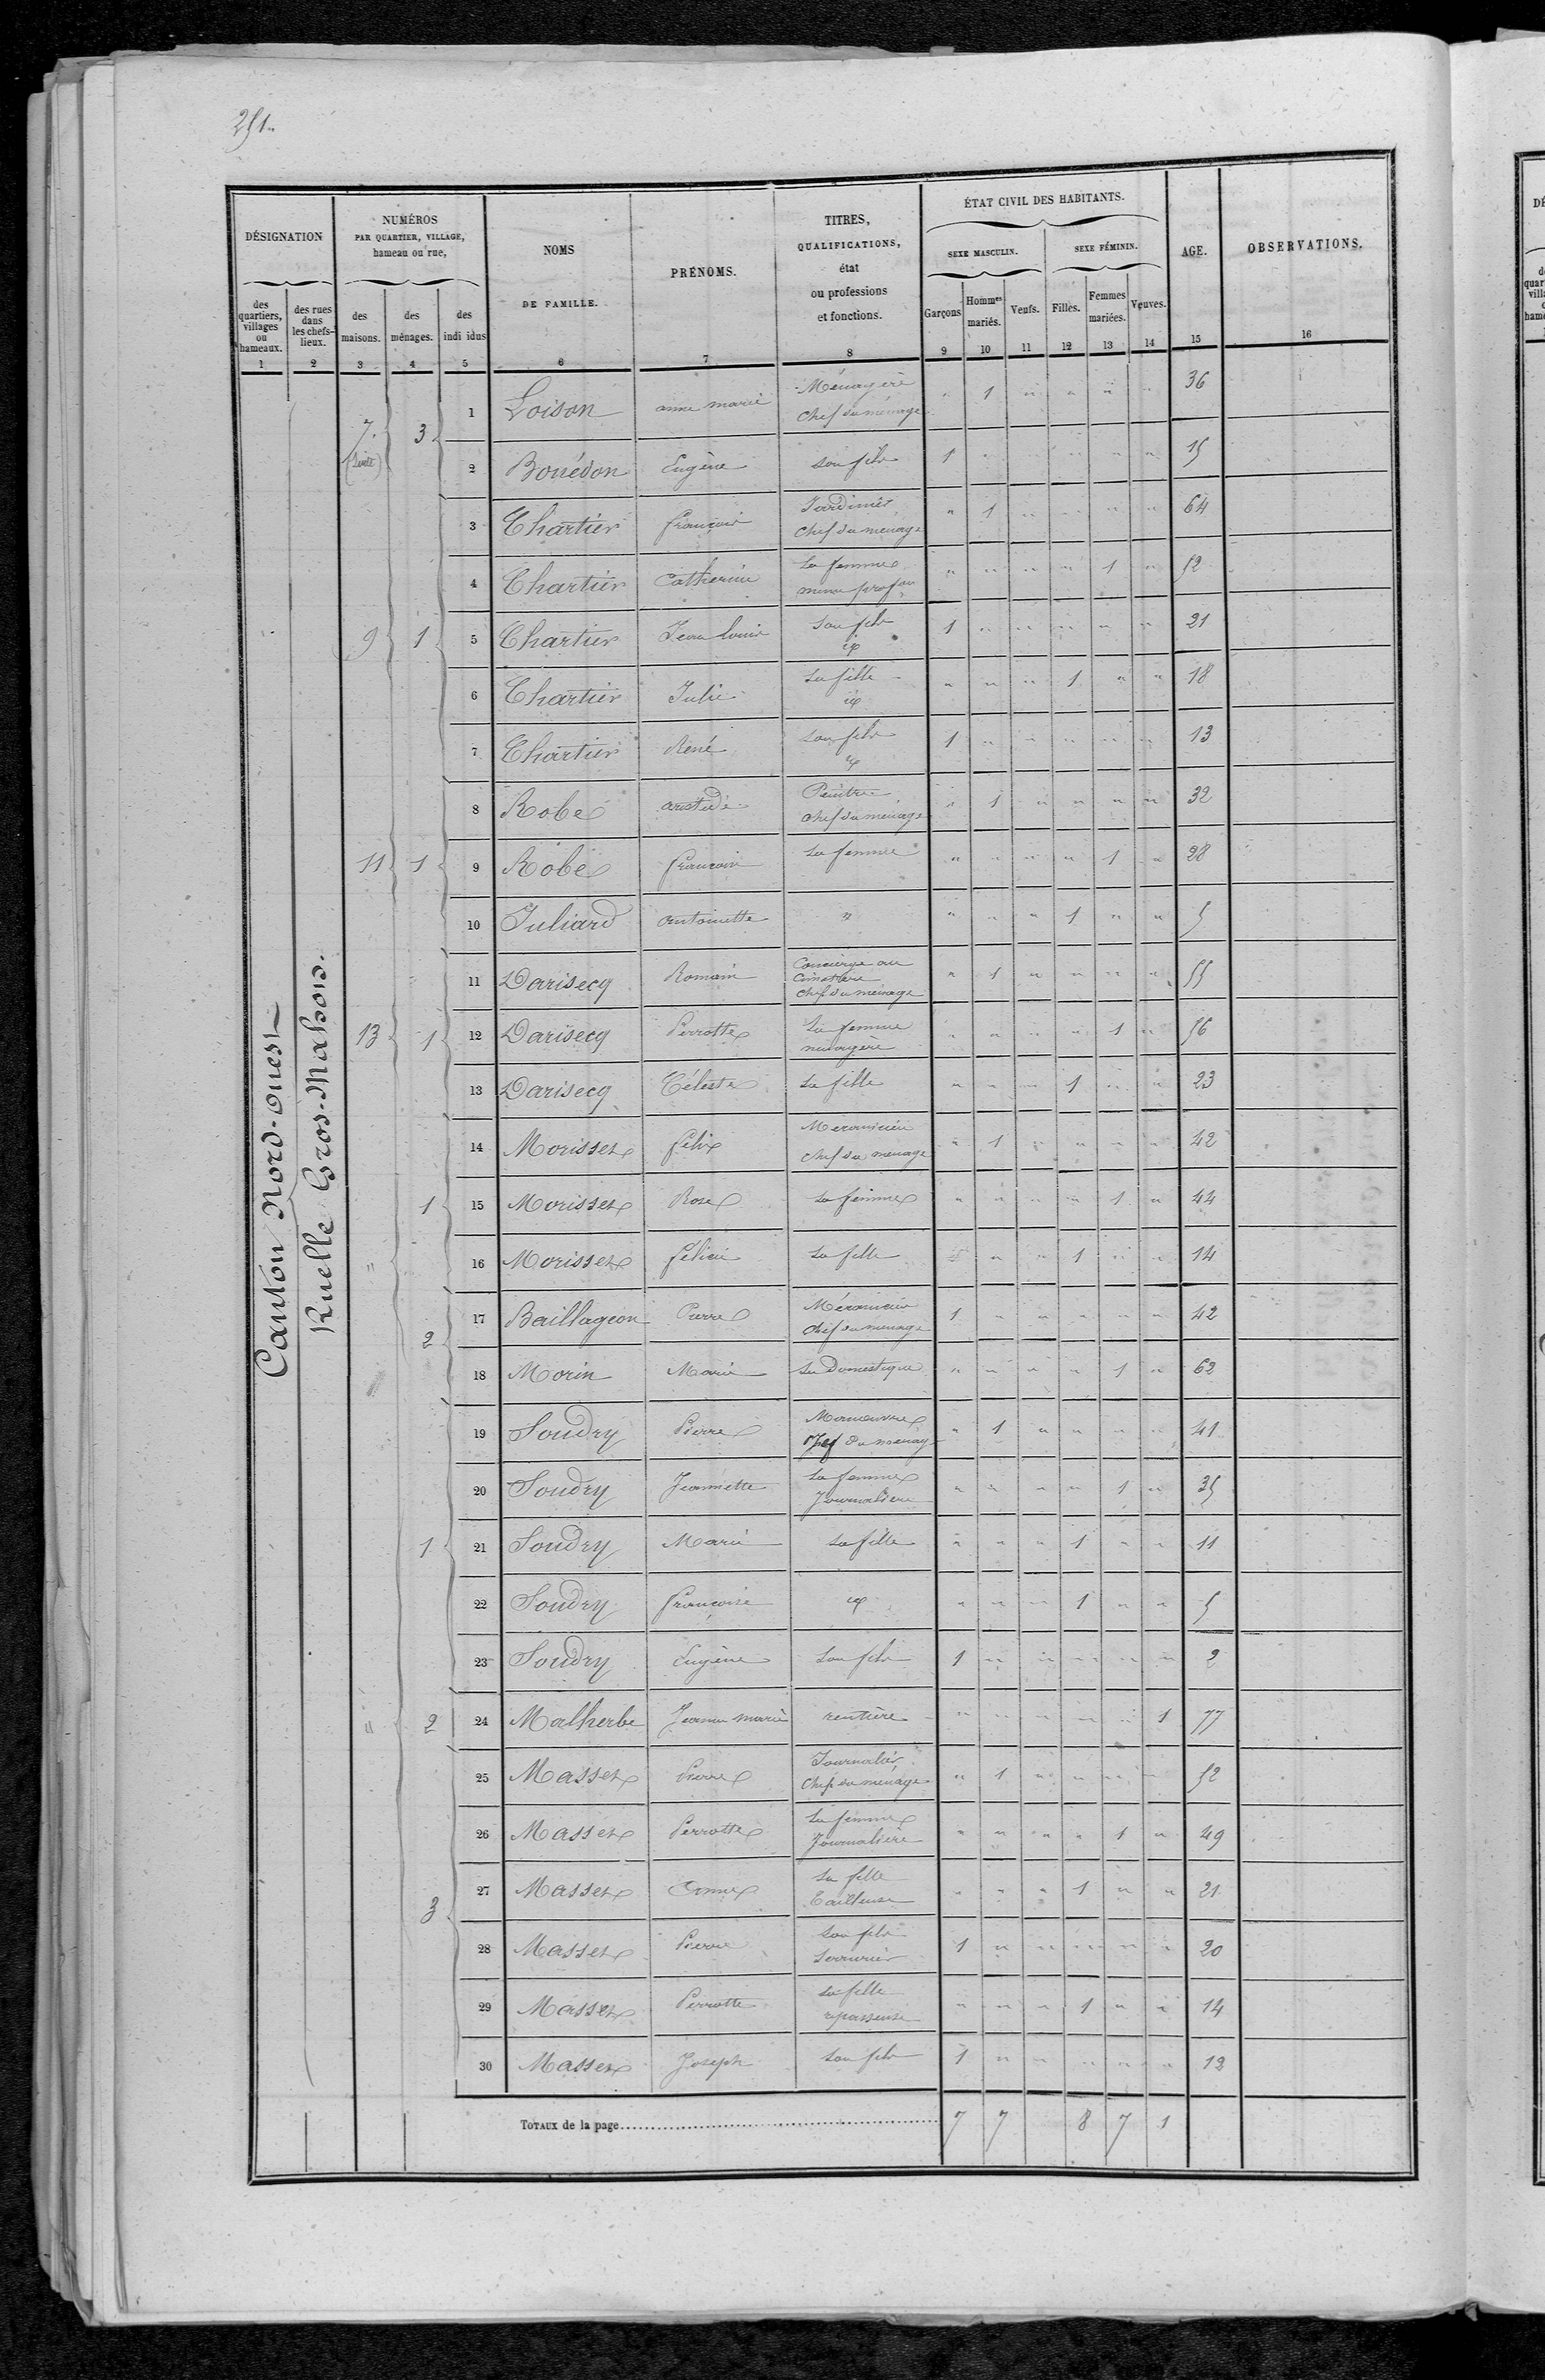 251.
DÉSIGNATION
NUMÉROS
PAR QUARTIER, VILLAGE,
hameau ou rue,
NOMS
DE FAMILLE.
PRÉNOMS.
TITRES,
QUALIFICATIONS,
état
ou professions
et fonctions.
ÉTAT CIVIL DES HABITANTS.
SEXE MASCULIN.
SEXE FÉMININ.
AGE.
OBSERVATIONS.
des
quartiers,
villages
ou
hameaux.
des rues
dans
les chefs-
lieux.
des
maisons.
des
ménages.
des
indi idus
Garçons
Hommes
mariés.
Veufs.
Filles.
Femmes
mariées.
Veuves.
1 2 3 4 5 6 7 8 9 10 11 12 13 14 15 16
Canton Nord-Ouest
Ruelle Gros-Mahon.
7. (Suite) 3 1 Loison anne marie Ménagère chef du ménage " 1 " " " " 36
2 Bouédon Eugène son fils 1 " " " " " 15
3 Chartier François Jardinier chef du ménage " 1 " " " " 64
4 Chartier Catherine sa femme même profon " " " " 1 " 52
9 1 5 Chartier Jean Louis son fils id 1 " " " " " 21
6 Chartier Julie sa fille id " " " 1 " " 18
7 Chartier René son fils id 1 " " " " " 13
8 Robe aristide Peintre chef du ménage " 1 " " " " 32
11 1 9 Robe Françoise sa femme " " " " 1 " 28
10 Juliard antoinette " " " " 1 " " 5
11 Darisecq Romain Concierge au Cimetière chef du ménage " 1 " " " " 55
13 1 12 Darisecq Perrotte sa femme ménagère " " " " 1 " 56
13 Darisecq Céleste sa fille " " " 1 " " 23
14 Morisset félix Mécanicien chef du ménage " 1 " " " " 42
1 15 Morisset Rose sa femme " " " " 1 " 44
" 16 Morisset félicie sa fille " " " 1 " " 14
2 17 Baillageon Pierre Mécanicien chef du ménage 1 " " " " " 42
18 Morin Marie sa Domestique " " " " 1 " 62
19 Soudry Pierre Manoeuvre chef du ménage " 1 " " " " 41
20 Soudry Jeannette sa femme Journalière " " " " 1 " 35
1 21 Soudry Marie sa fille " " " 1 " " 11
22 Soudry Françoise id " " " 1 " " 5
23 Soudry Eugène son fils 1 " " " " " 2
" 2 24 Malherbe Jeanne marie rentière " " " " " 1 77
25 Masset Pierre Journalier chef du ménage " 1 " " " " 52
26 Masset Perrotte sa femme Journalière " " " " 1 " 49
3 27 Masset Anne sa fille Tailleuse " " " 1 " " 21
28 Masset Pierre son fils Serrurier 1 " " " " " 20
29 Masset Perrotte sa fille repasseuse " " " 1 " " 14
30 Masset Joseph son fils 1 " " " " " 12
TOTAUX de la page 7 7 8 7 1